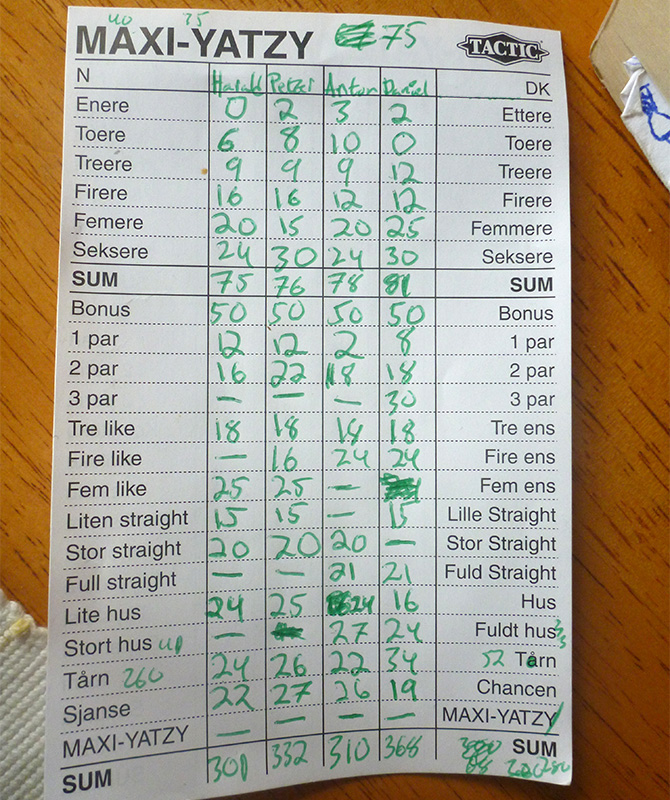 40 75
MAXI-YATZY 75 TACTIC
N Harald Petter Anton Daniel DK
Enere 0 2 3 2 Ettere
Toere 6 8 10 0 Toere
Treere 9 9 9 12 Treere
Firere 16 16 12 12 Firere
Femere 20 15 20 25 Femmere
Seksere 24 30 24 30 Seksere
SUM 75 76 78 81 SUM
Bonus 50 50 50 50 Bonus
1 par 12 12 2 8 1 par
2 par 16 22 18 18 2 par
3 par — — — 30 3 par
Tre like 18 18 18 18 Tre ens
Fire like — 16 24 24 Fire ens
Fem like 25 25 — Fem ens
Liten straight 15 15 — 15 Lille Straight
Stor straight 20 20 20 — Stor Straight
Full straight — — 21 21 Fuld Straight
Lite hus 24 25 24 16 Hus
Stort hus — 27 24 Fuldt hus
Tårn 260 24 26 22 34 52 Tårn
Sjanse 22 27 26 19 Chancen
MAXI-YATZY — — — — MAXI-YATZY
SUM 301 332 310 368 SUM